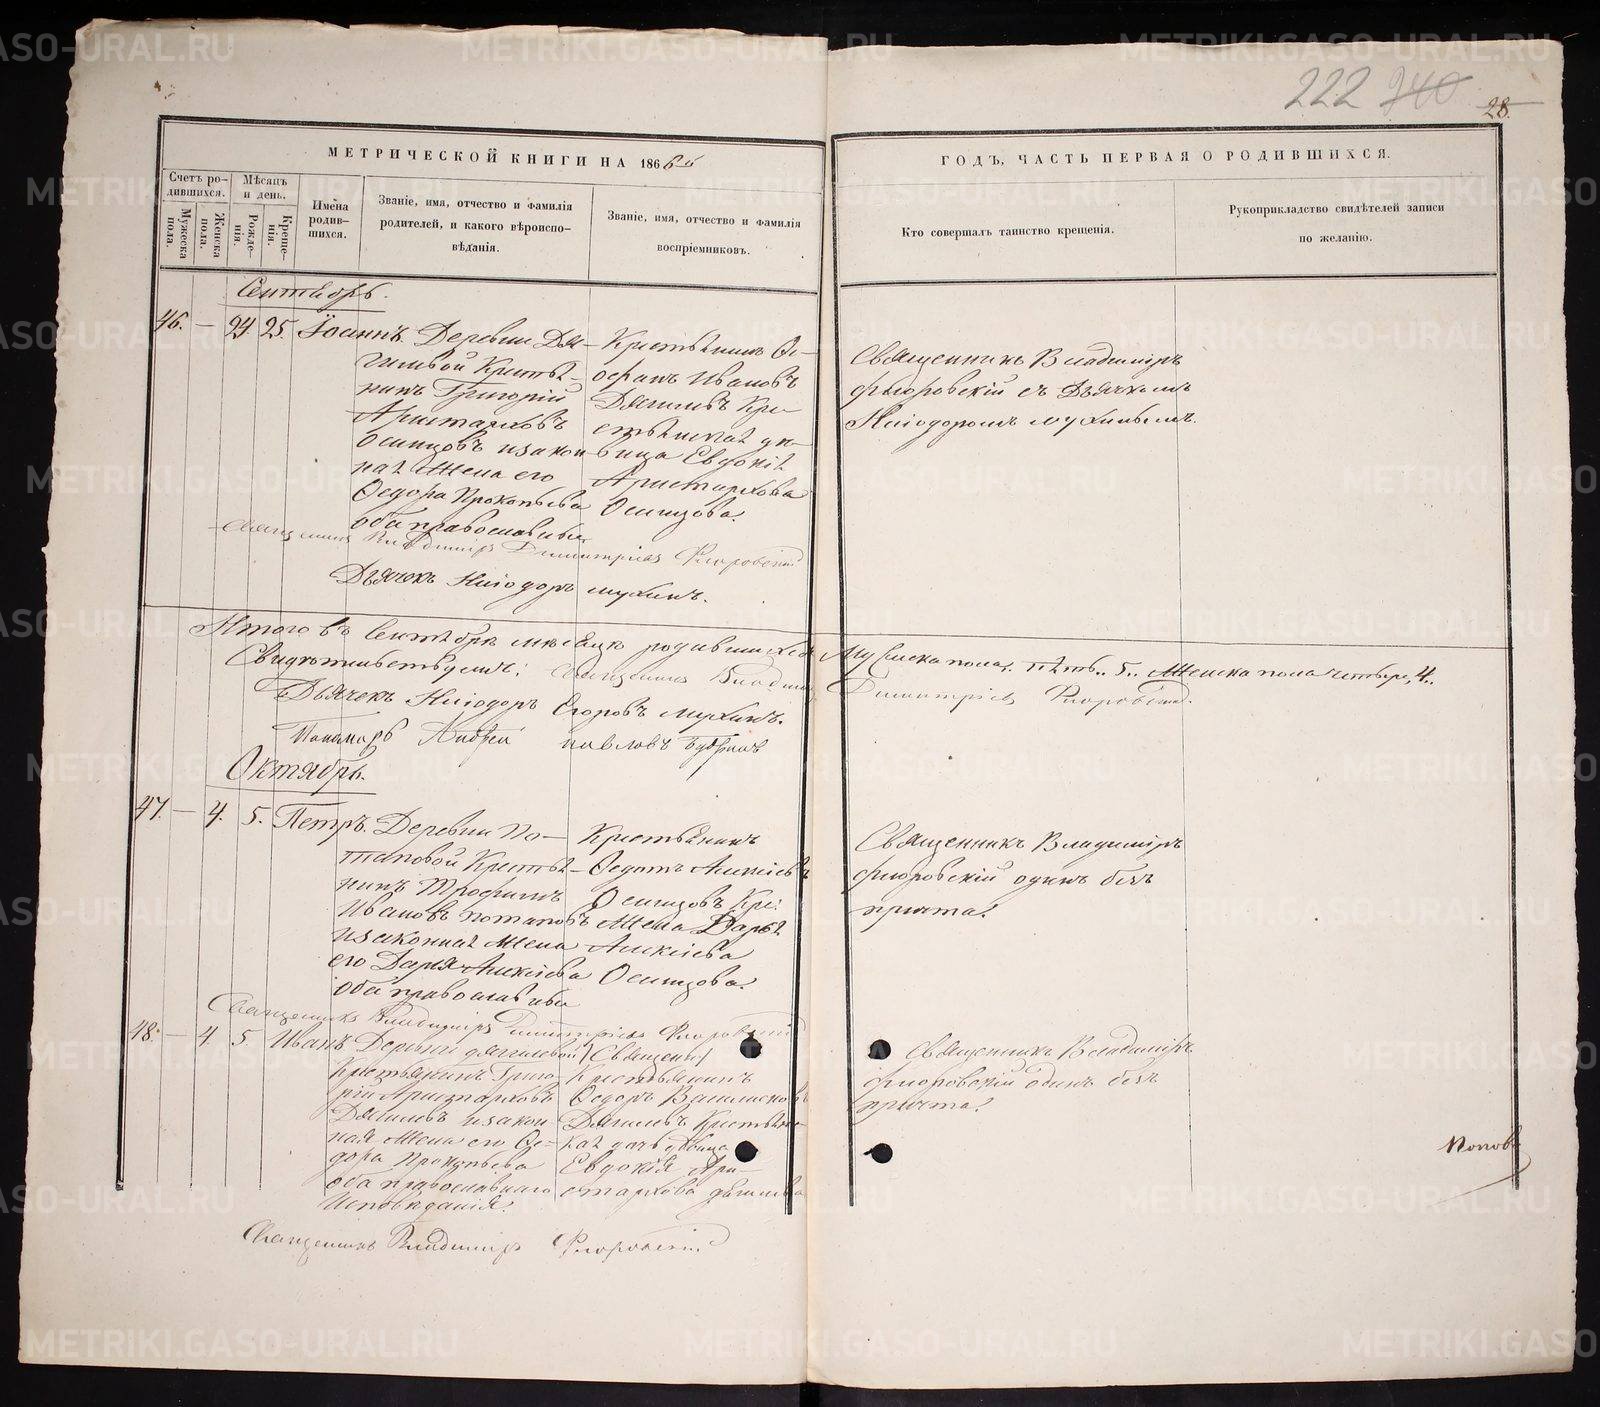 222 740 28.
МЕТРИЧЕСКОЙ КНИГИ НА 1866й
ГОДЪ, ЧАСТЬ ПЕРВАЯ О РОДИВШИХСЯ.
Счетъ ро-
дившихся.
Мужеска
пола.
Женска
пола.
Мѣсяцъ
и день.
Рожде-
нія.
Креще-
нія.
Имена
родив-
шихся.
Званіе, имя, отчество и фамилія
родителей, и какого вѣроиспо-
вѣданія.
Званіе, имя, отчество и фамилія
воспріемниковъ.
Кто совершалъ таинство крещенія.
Рукоприкладство свидѣтелей записи
по желанію.
Сентябрь.
46. — 24. 25. Іоаннъ.
Деревни Дя-
гилевой Кресть-
нинъ Григорій
Аристарховъ
Осинцовъ изакон-
ная Жена его
Ѳедора Прокопьева
оба православные
Крестьянинъ
Ивановъ
Дягилевъ Кре-
стьянская дѣ-
вица Евдокія
Аристархова
Осинцова.
Священникъ Владиміръ
Флоровскій съ Дьячкомъ
Неіодоромъ Мухинымъ.
Священникъ Владиміръ Димитріевъ Флоровскій
Дьячекъ Неіодоръ Мухинъ.
Итого въ Сентябрѣ мѣсяцѣ родившихся Мужеска пола пять.. 5.. Женска пола четыре, 4..
Свидѣтельствуемъ: Священникъ Владиміръ Димитріевъ Флоровскій.
Дьячекъ Неіодоръ Егоровъ Мухинъ.
Пономарь Андрей Павловъ
Октябрь.
47. — 4. 5. Петръ.
Деревни По-
таповой Крестья-
нинъ Трофимъ
Ивановъ Потаповъ
изаконная Жена
его Дарья Алексіева
оба православные
Крестьянинъ
Ѳедотъ Алексіевъ
Осинцовъ Кре:
Жена Дарья
Алексіева
Осинцова.
Священникъ Владиміръ
Флоровскій одинъ безъ
причта.
Священникъ Владиміръ Димитріевъ Флоровскій
48. — 4. 5. Иванъ
Деревни Дягилевой
Крестьянинъ Григо-
рій Аристарховъ
Дягилевъ изакон
ная Жена его Ѳе-
дора Прокопьева
оба православнаго
Исповѣданія.
Крестьянинъ
Ѳедоръ
Дягилевъ Крестьянс-
кая дочь дѣвица
Евдокія Ари-
стархова Дягилева
Священникъ Владиміръ
Флоровскій одинъ безъ
причта.
Поповъ
Священникъ Владиміръ Флоровскій
METRIKI.GASO-URAL.RU